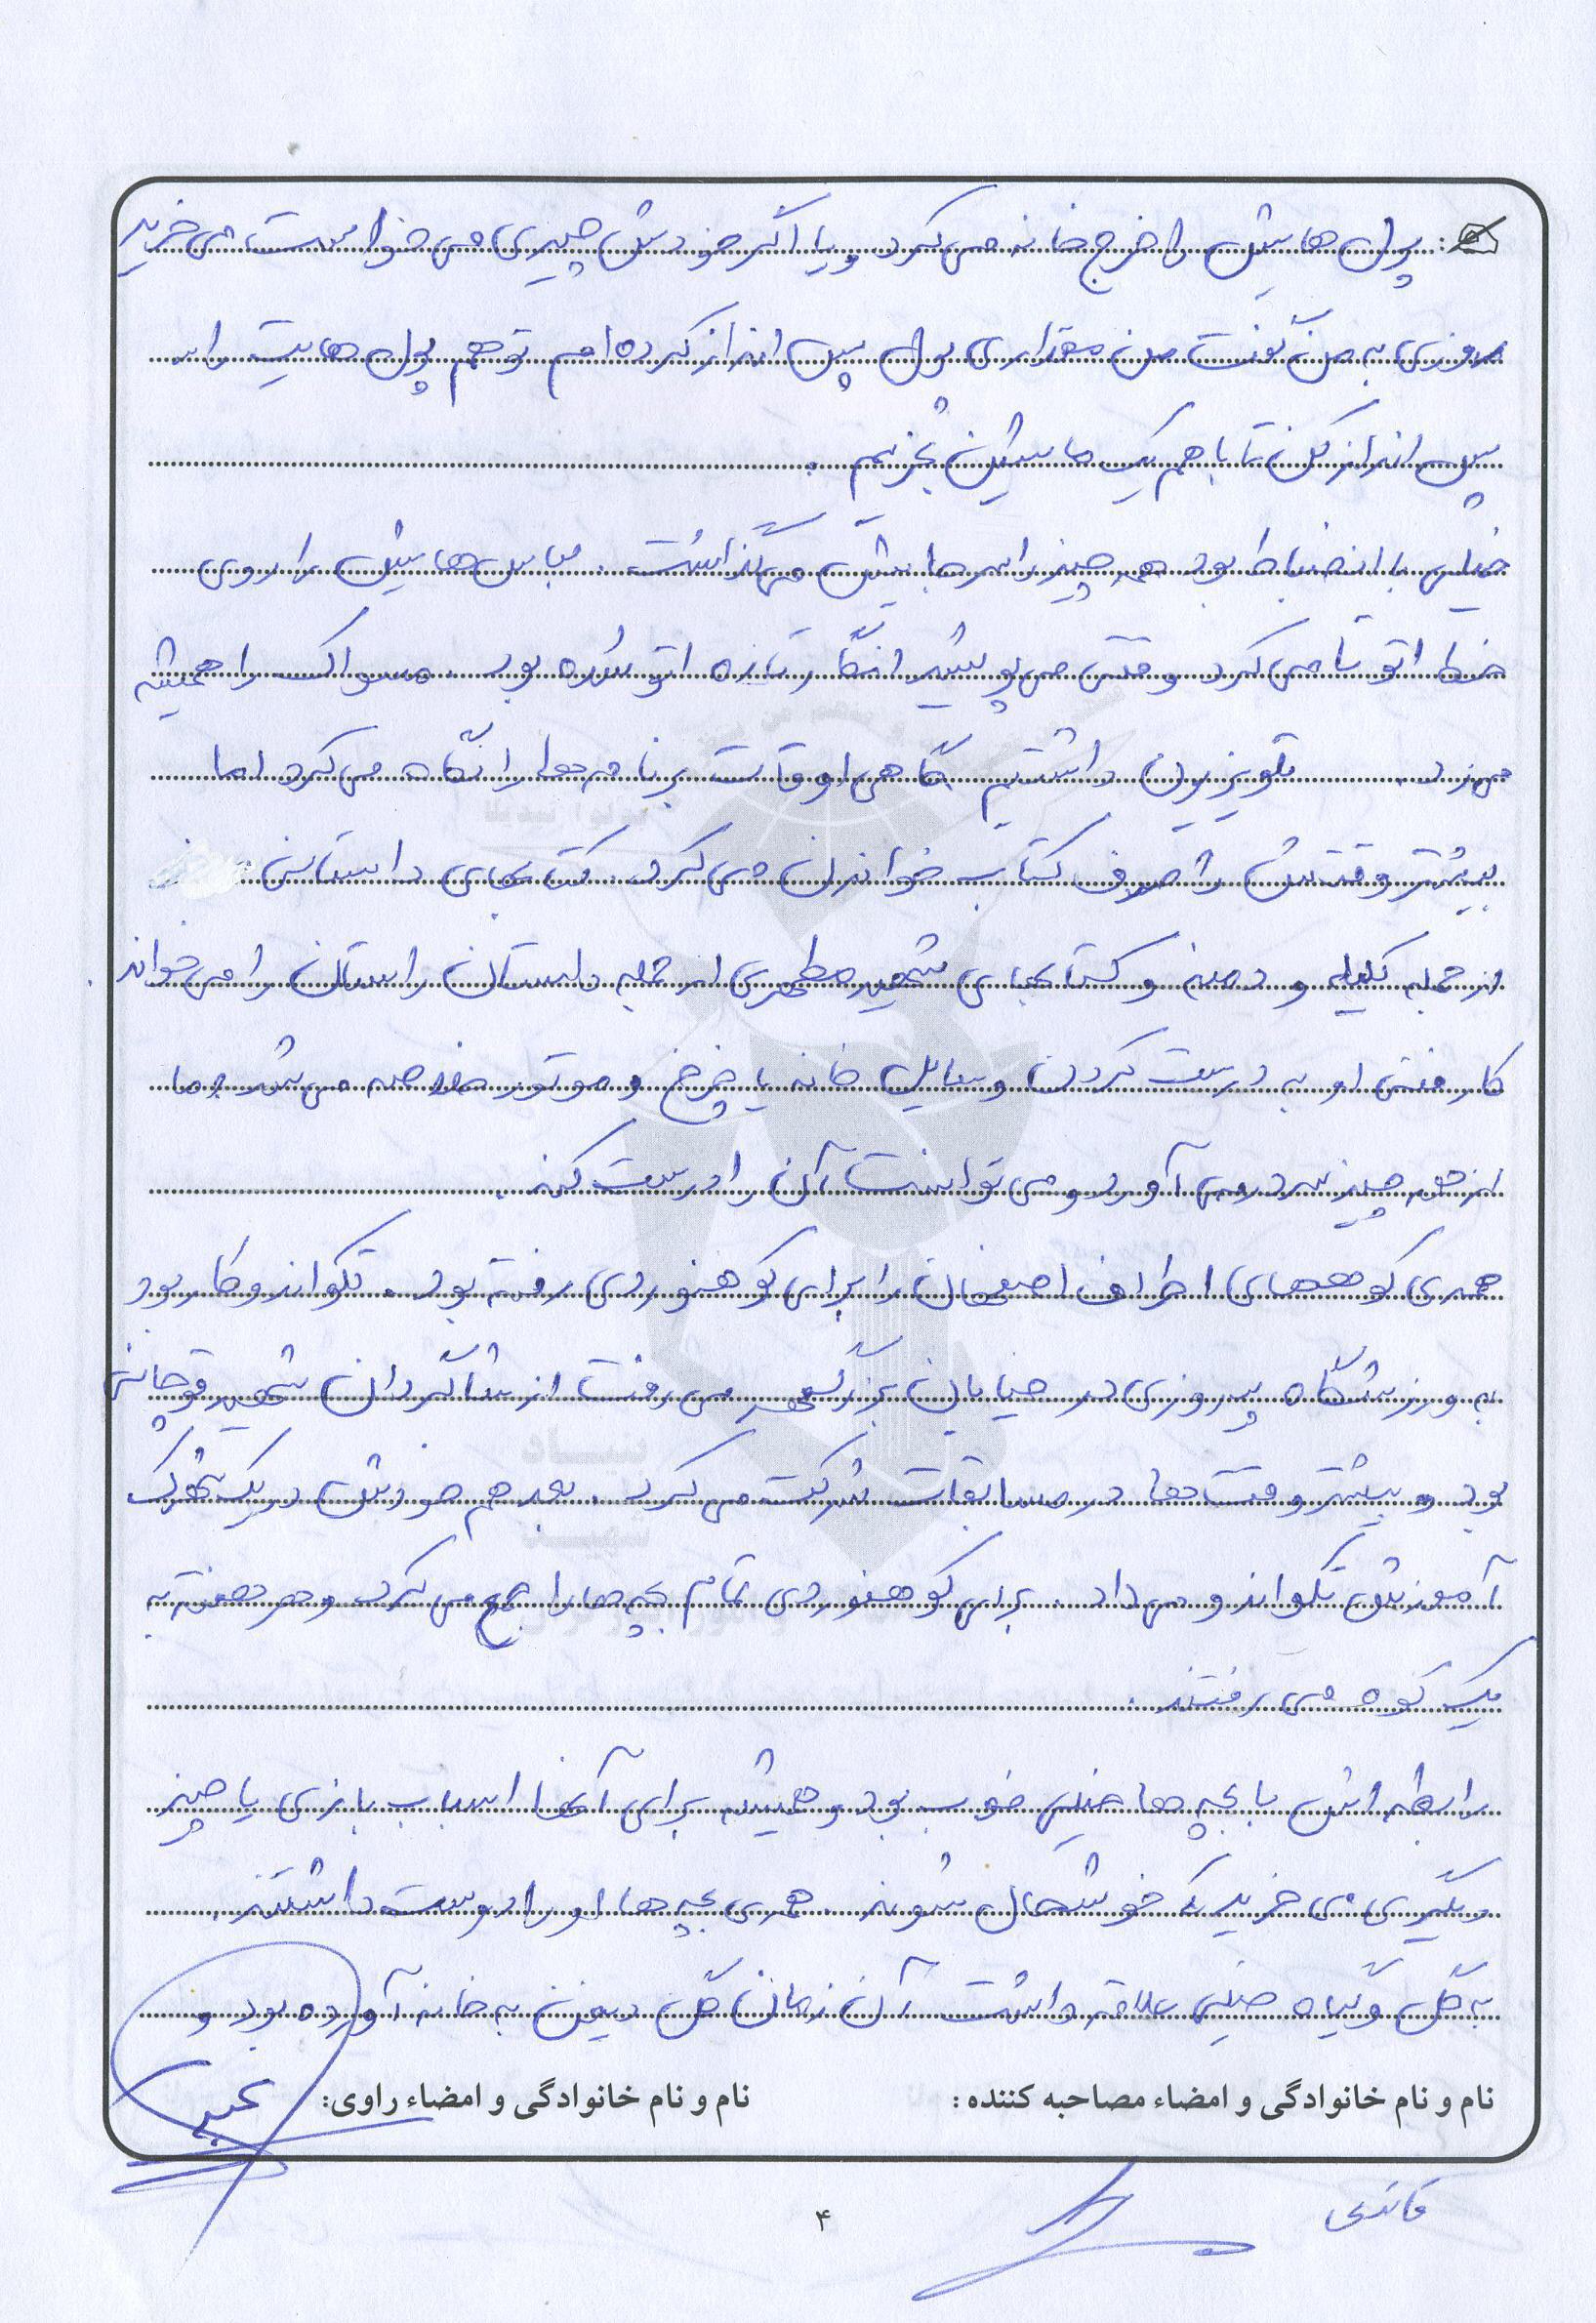 پول هایش را خرج خانه می کرد و یا اگر خودش چیزی می خواست می خرید
روزی به من گفت من مقداری پول پس انداز کرده ام تو هم پول هایت را
پس انداز کن تا با هم یک ماشین بخریم .
خیلی با انضباط بود همه چیز را سر جایش می گذاشت . لباس هایش را روی
خط اتو تا می کرد وقتی می پوشید انگار تازه اتو شده بود . مسواک را همیشه
می زد . تلویزیون داشتیم گاهی اوقات برنامه ها را نگاه می کرد اما
بیشتر وقتش را صرف کتاب خواندن می کرد . کتابهای داستانی
از جمله کلیله و دمنه و کتابهای شهید مطهری از جمله داستان راستان را می خواند .
کار فنی او به درست کردن وسایل خانه یا چرخ و موتور خلاصه می شد اما
از همه چیز سر در می آورد و می توانست آن را درست کند .
همه ی کوههای اطراف اصفهان را برای کوهنوردی رفته بود . تکواندو کار بود
به ورزشگاه پیروزی در خیابان بزرگمهر می رفت از شاگردان شهید قوچانی
بود و بیشتر وقت ها در مسابقات شرکت می کرد . بعد هم خودش در یک شهرک
آموزش تکواندو می داد . برای کوهنوردی تمام بچه ها را جمع می کرد و هر هفته به
یک کوه می رفتند .
رابطه اش با بچه ها خیلی خوب بود و همیشه برای آنها اسباب بازی یا چیز
دیگری می خرید که خوشحال شوند . همه ی بچه ها او را دوست داشتند .
به گل و گیاه خیلی علاقه داشت آن زمان گل دیفن به خانه آورده بود و
نام و نام خانوادگی و امضاء مصاحبه کننده : نام و نام خانوادگی و امضاء راوی:
۴